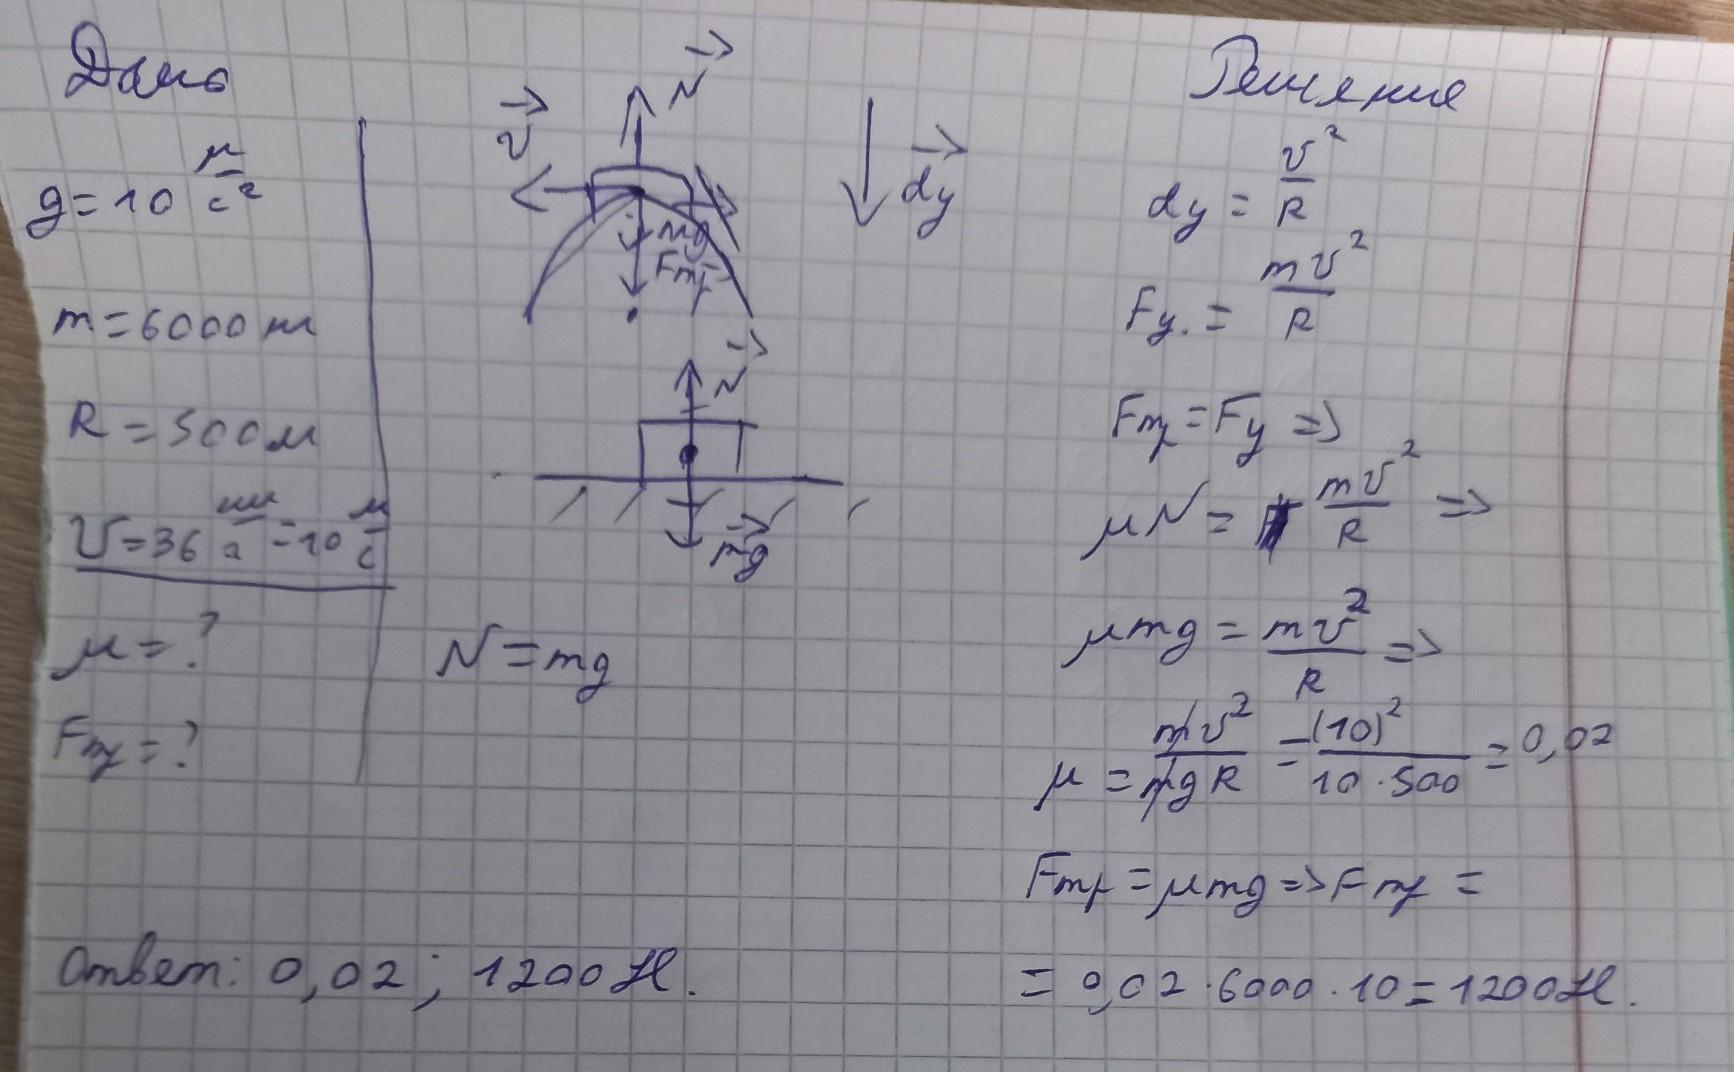 Дано
g = 10 м/с²
m = 6000 кг
R = 500 м
v = 36 км/ч = 10 м/с
μ = ?
Fтр = ?
v
N
mg
Fтр
dy
N
mg
N = mg
Решение
dy = v²/R
Fy. = mv²/R
Fтр = Fy =>
μN = mv²/R =>
μmg = mv²/R =>
μ = mv²/mgR = (10)²/10·500 = 0,02
Fтр = μmg => Fтр =
= 0,02·6000·10 = 1200Н.
Ответ: 0,02; 1200Н.